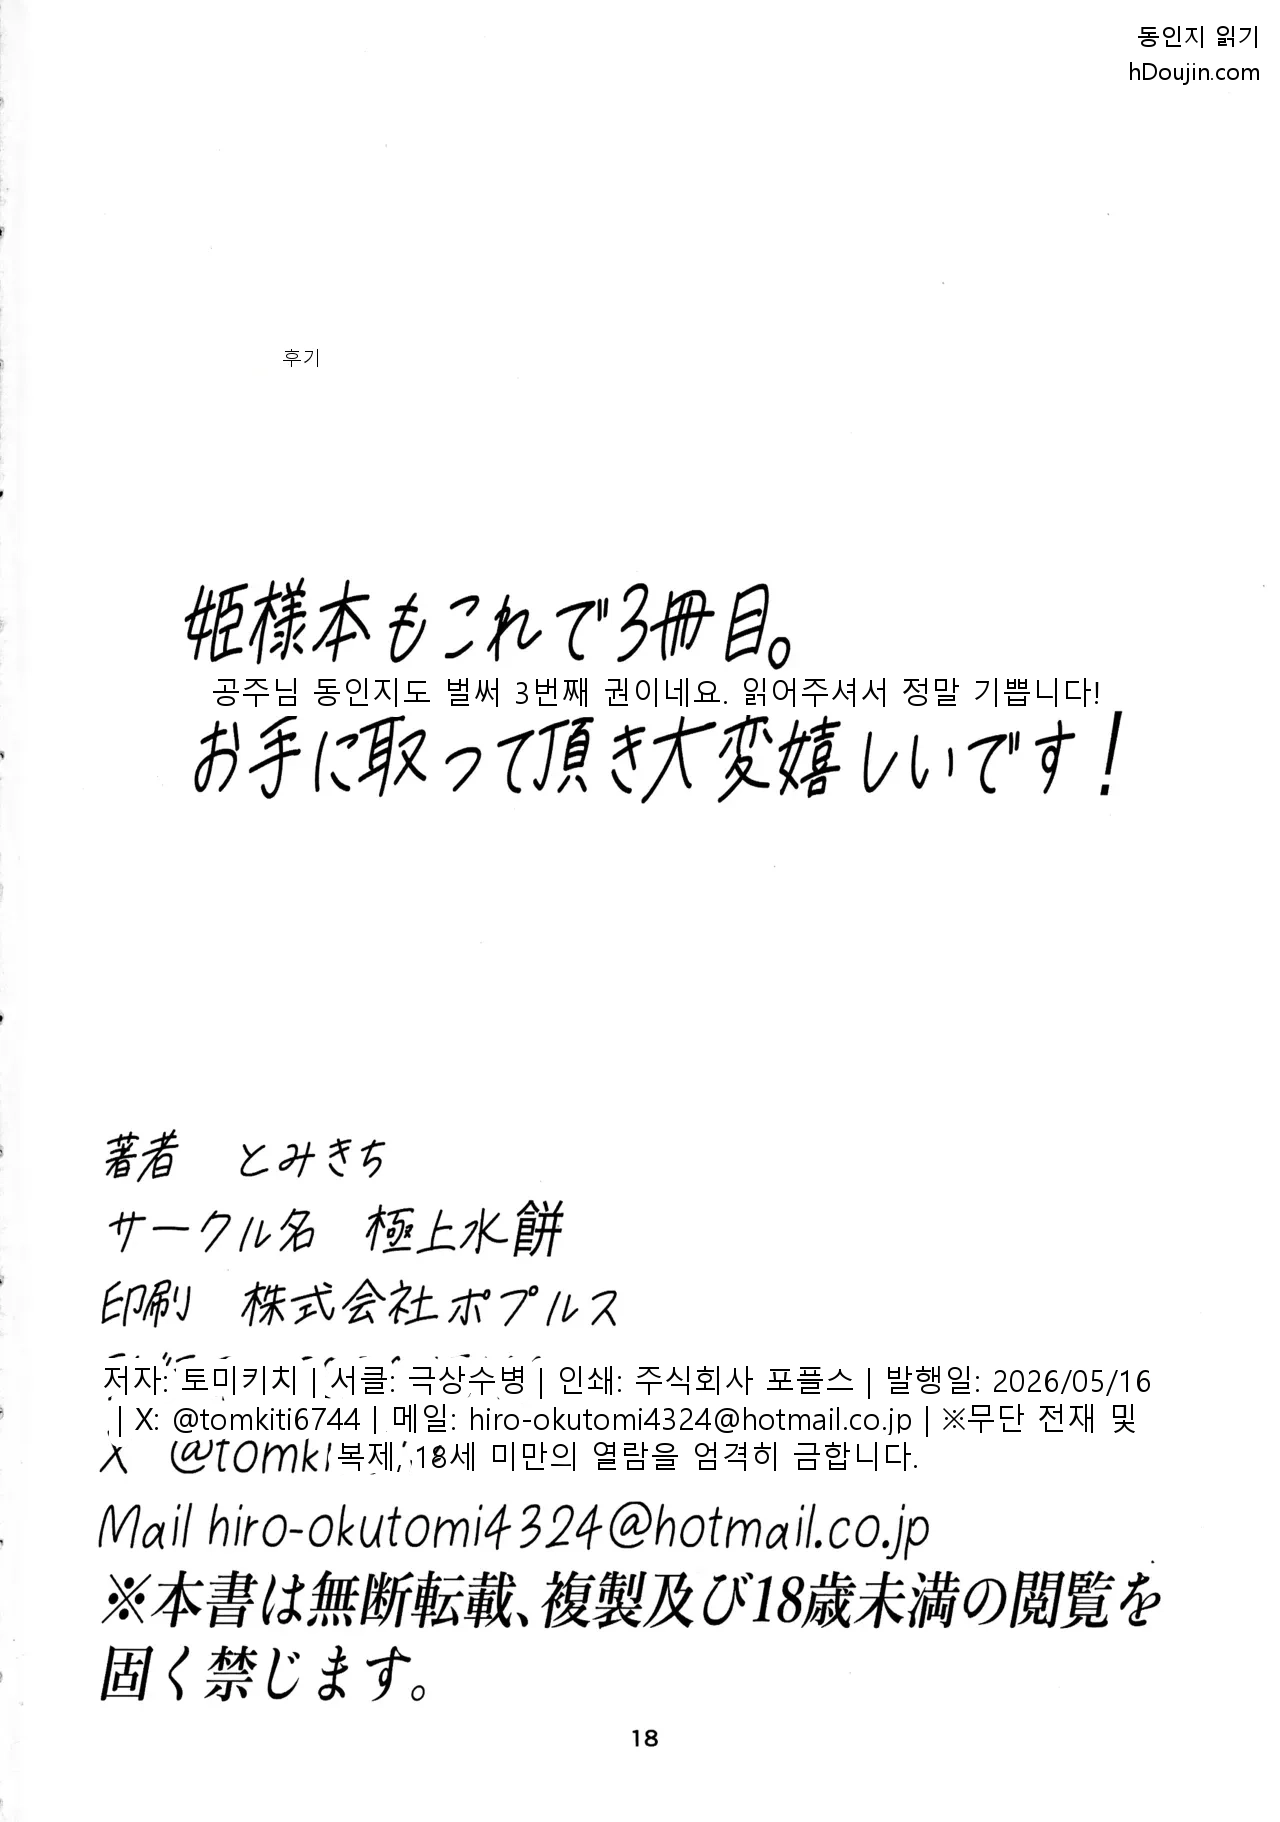 동인지 읽기
hDoujin.com
후기
姫様本もこれで3冊目。
공주님 동인지도 벌써 3번째 권이네요. 읽어주셔서 정말 기쁩니다!
お手に取って頂き大変嬉しいです！
著者　とみきち
サークル名　極上水餅
印刷　株式会社ポプルス
저자: 토미키치 | 서클: 극상수병 | 인쇄: 주식회사 포플스 | 발행일: 2026/05/16
| X: @tomkiti6744 | 메일: hiro-okutomi4324@hotmail.co.jp | ※무단 전재 및
복제, 18세 미만의 열람을 엄격히 금합니다.
X @tomki
Mail hiro-okutomi4324@hotmail.co.jp
※本書は無断転載、複製及び18歳未満の閲覧を
固く禁じます。
18